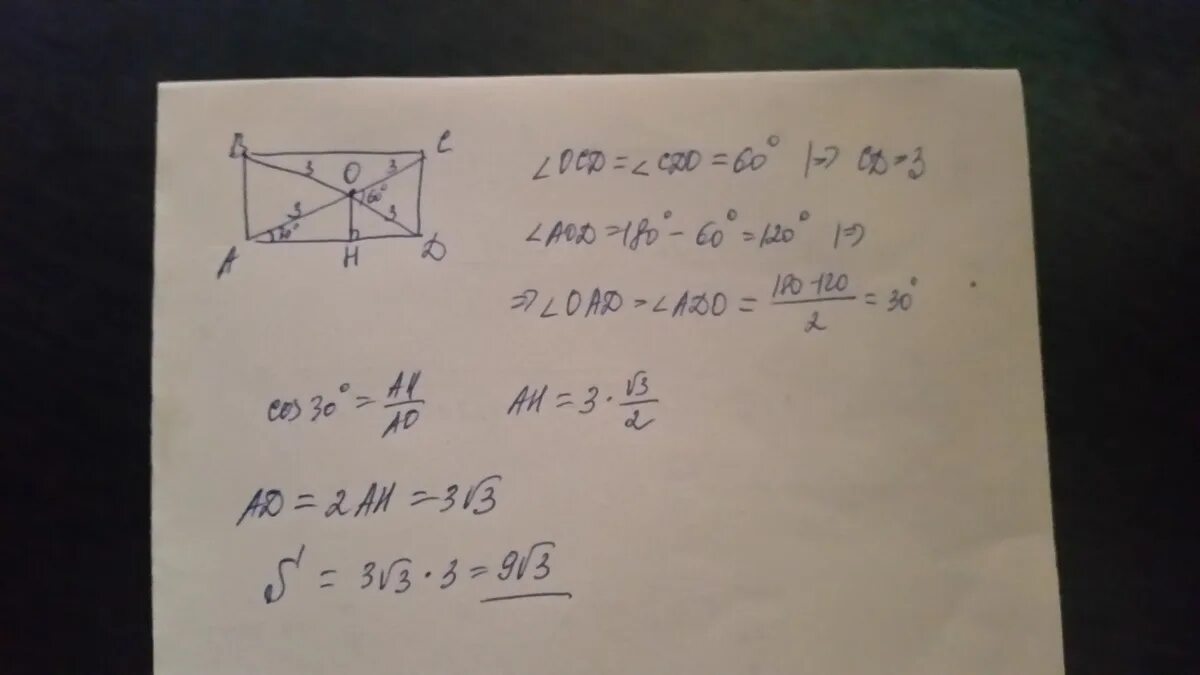 B C
3 O 3
60°
3 3
30°
A H D
∠OCD = ∠CDO = 60° |⇒ CD = 3
∠AOD = 180° - 60° = 120° |⇒
⇒ ∠OAD = ∠ADO = (180 - 120)/2 = 30°
cos 30° = AH/AO AH = 3 · √3/2
AD = 2AH = 3√3
S = 3√3 · 3 = 9√3